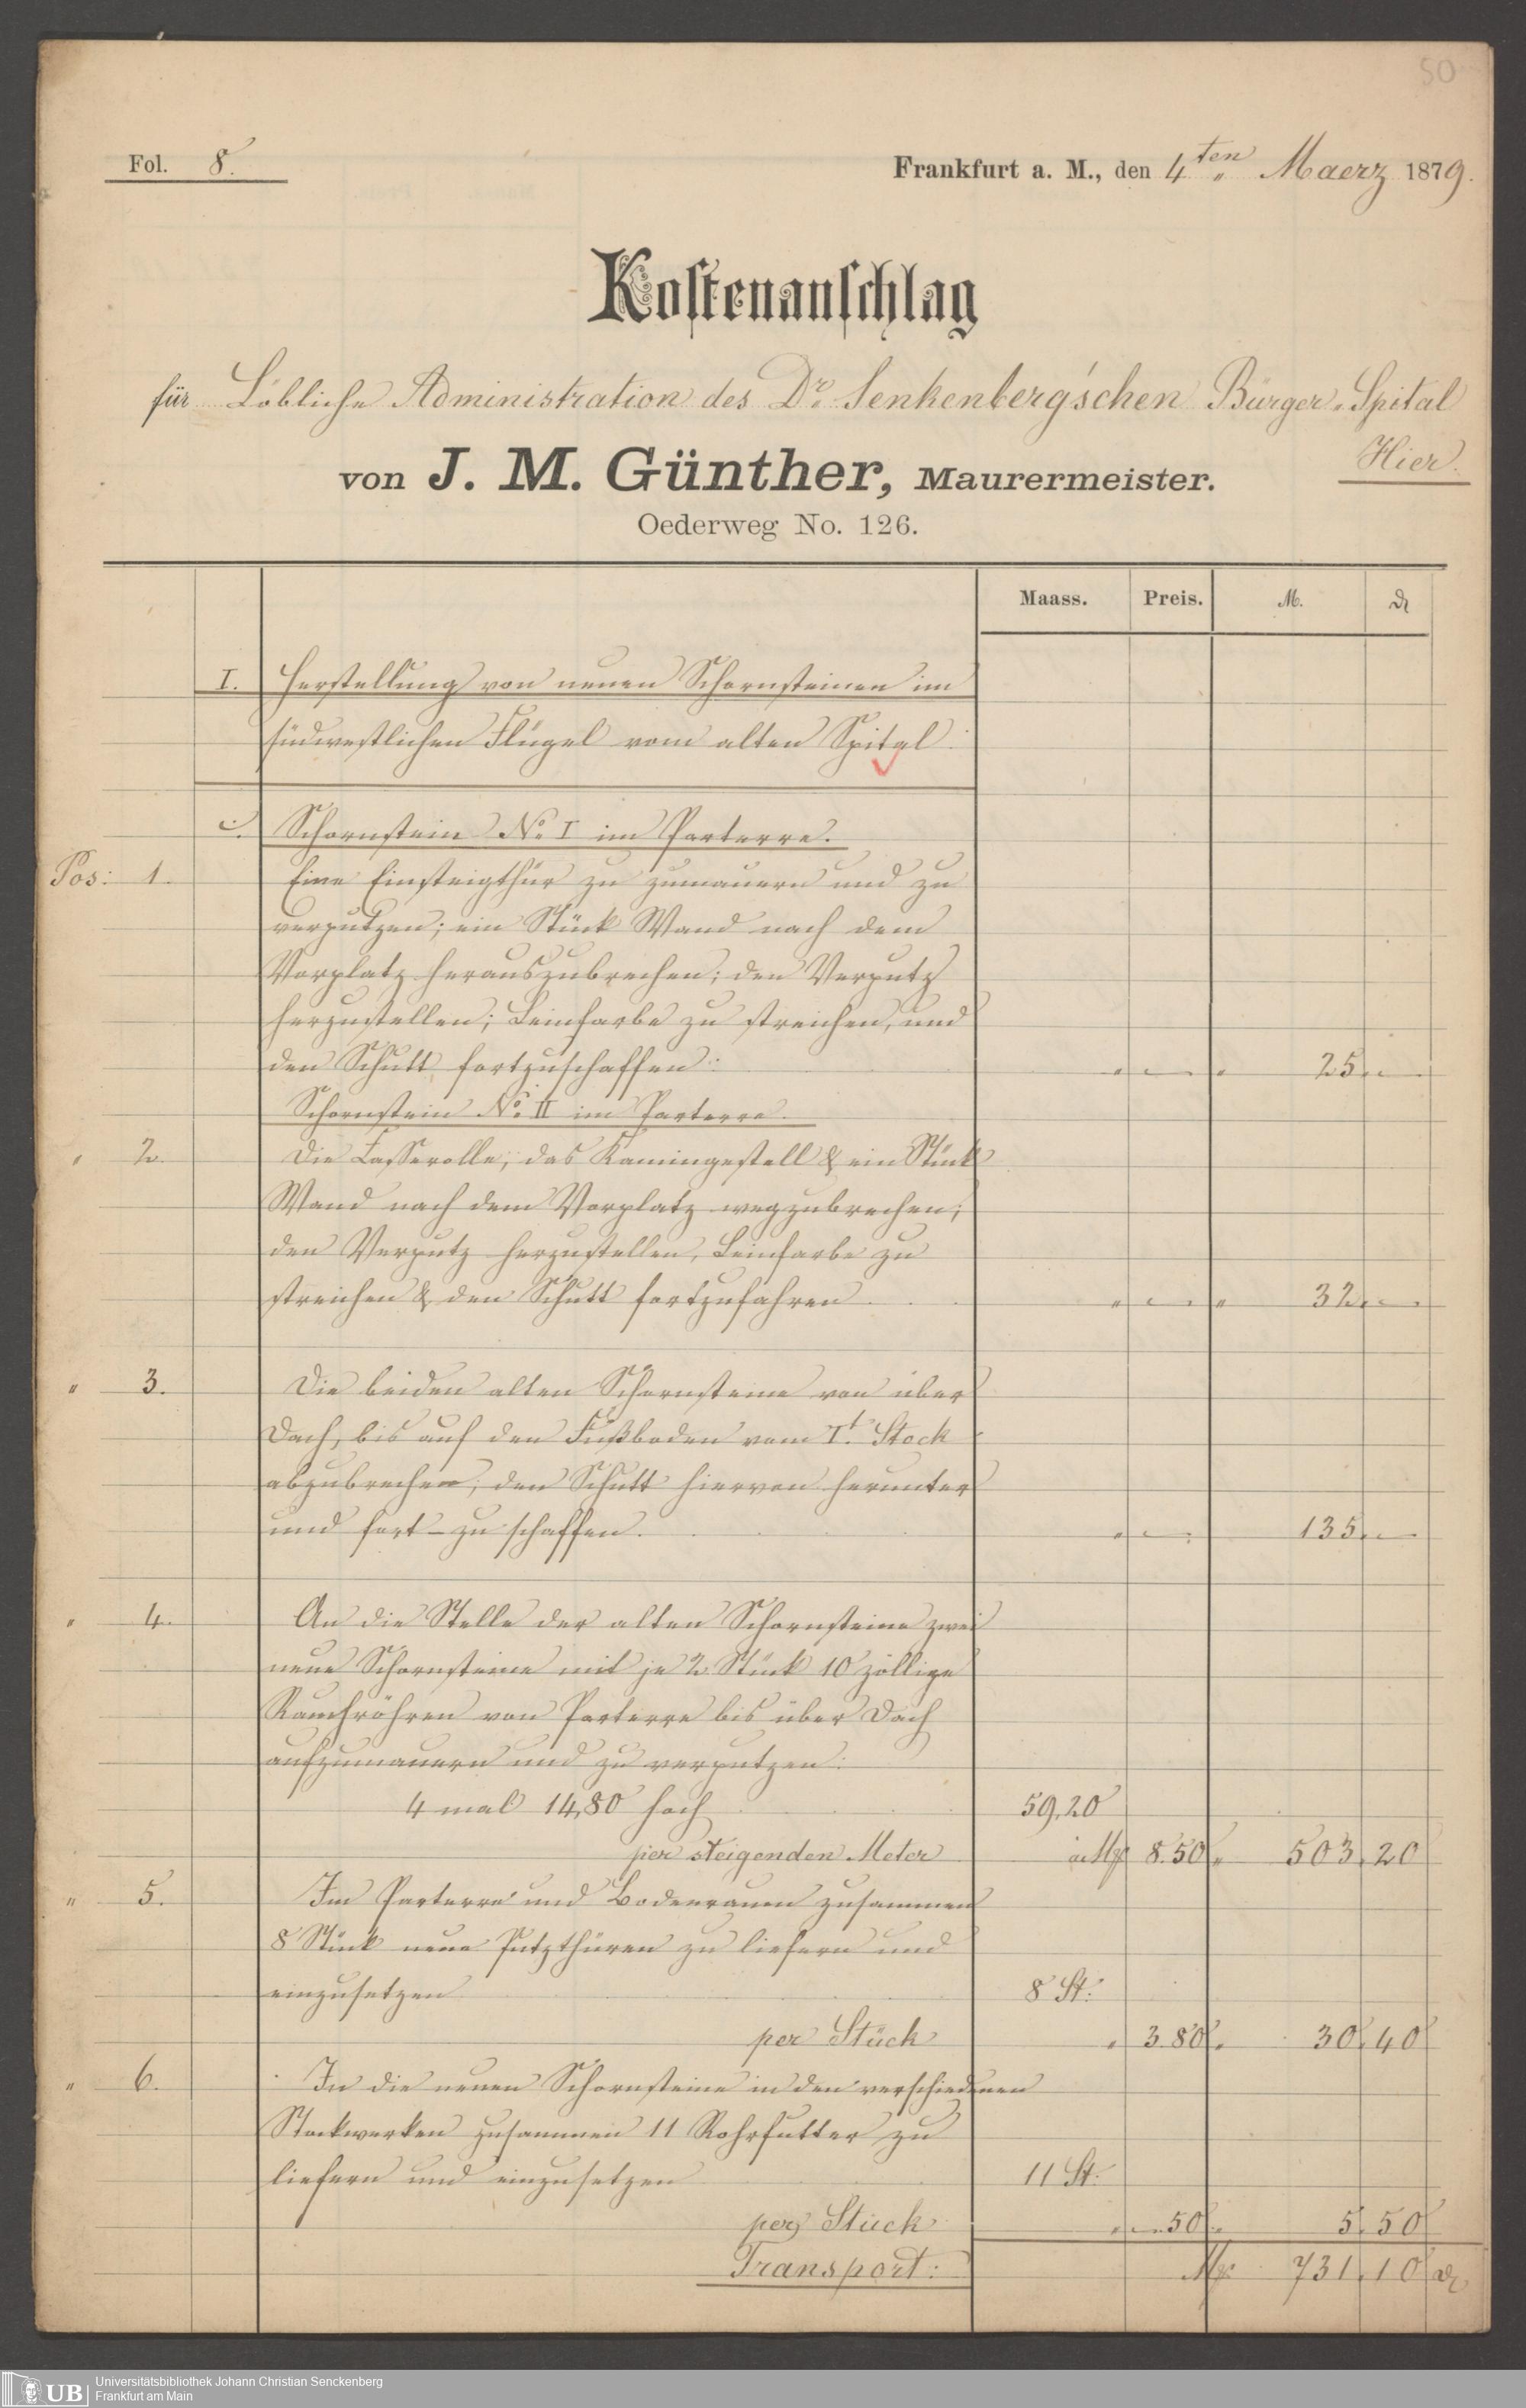 50
Fol. 8.
Frankfurt a. M., den 4ten Maerz 1879.
Kostenanschlag
für Löbliche Administration des Dr. Senkenberg'schen Bürger-Spital
Hier.
von J. M. Günther, Maurermeister.
Oederweg No. 126.
Maass. Preis. M. ₰
I. Herstellung von neuen Schornsteinen im
südwestlichen Flügel vom alten Spital.
Schornstein No. I im Parterre.
Pos: 1. Eine Einsteigthür zu zumauern und zu
verputzen; ein Stück Wand nach dem
Vorplatz herauszubrechen; den Verputz
herzustellen; Leimfarbe zu streichen, und
den Schutt fortzuschaffen: " — " 25 " —
Schornstein No. II im Parterre.
" 2. Die Casserolle, das Kamingestell & ein Stück
Wand nach dem Vorplatz wegzubrechen;
den Verputz herzustellen, Leimfarbe zu
streichen & den Schutt fortzufahren . . " — " 32 " —
" 3. Die beiden alten Schornsteine von über
Dach, bis auf den Fußboden vom It. Stock
abzubrechen, den Schutt hiervon herunter
und fort- zu schaffen. " — " 135 " —
" 4. An die Stelle der alten Schornsteine zwei
neue Schornsteine mit je 2 Stück 10 zöllige
Rauchröhren von Parterre bis über Dach
aufzumauern und zu verputzen:
4 mal 14,80 hoch 59,20
per steigenden Meter à M 8.50 " 503, 20
" 5. Im Parterre und Bodenraum zusammen
8 Stück neue Putzthüren zu liefern und
einzusetzen 8 St:
per Stück " 3.80 " 30, 40
" 6. In die neuen Schornsteine in den verschiedenen
Stockwerken zusammen 11 Rohrfutter zu
liefern und einzusetzen 11 St:
per Stück " —.50 " 5, 50
Transport: M 731, 10 ₰
UB
Universitätsbibliothek Johann Christian Senckenberg
Frankfurt am Main